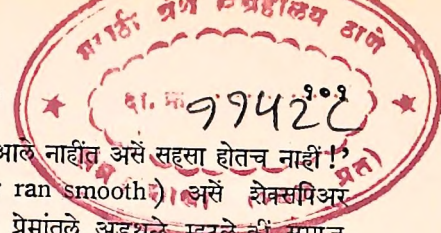 मराठी ग्रंथ संग्रहालय ठाणे
दा. क्र. ११५२९
१०१
आले नाहींत असें सहसा होतच नाहीं !'
ran smooth) असें शेक्सपिअर
प्रेमांतले अडथळे म्हटले कीं